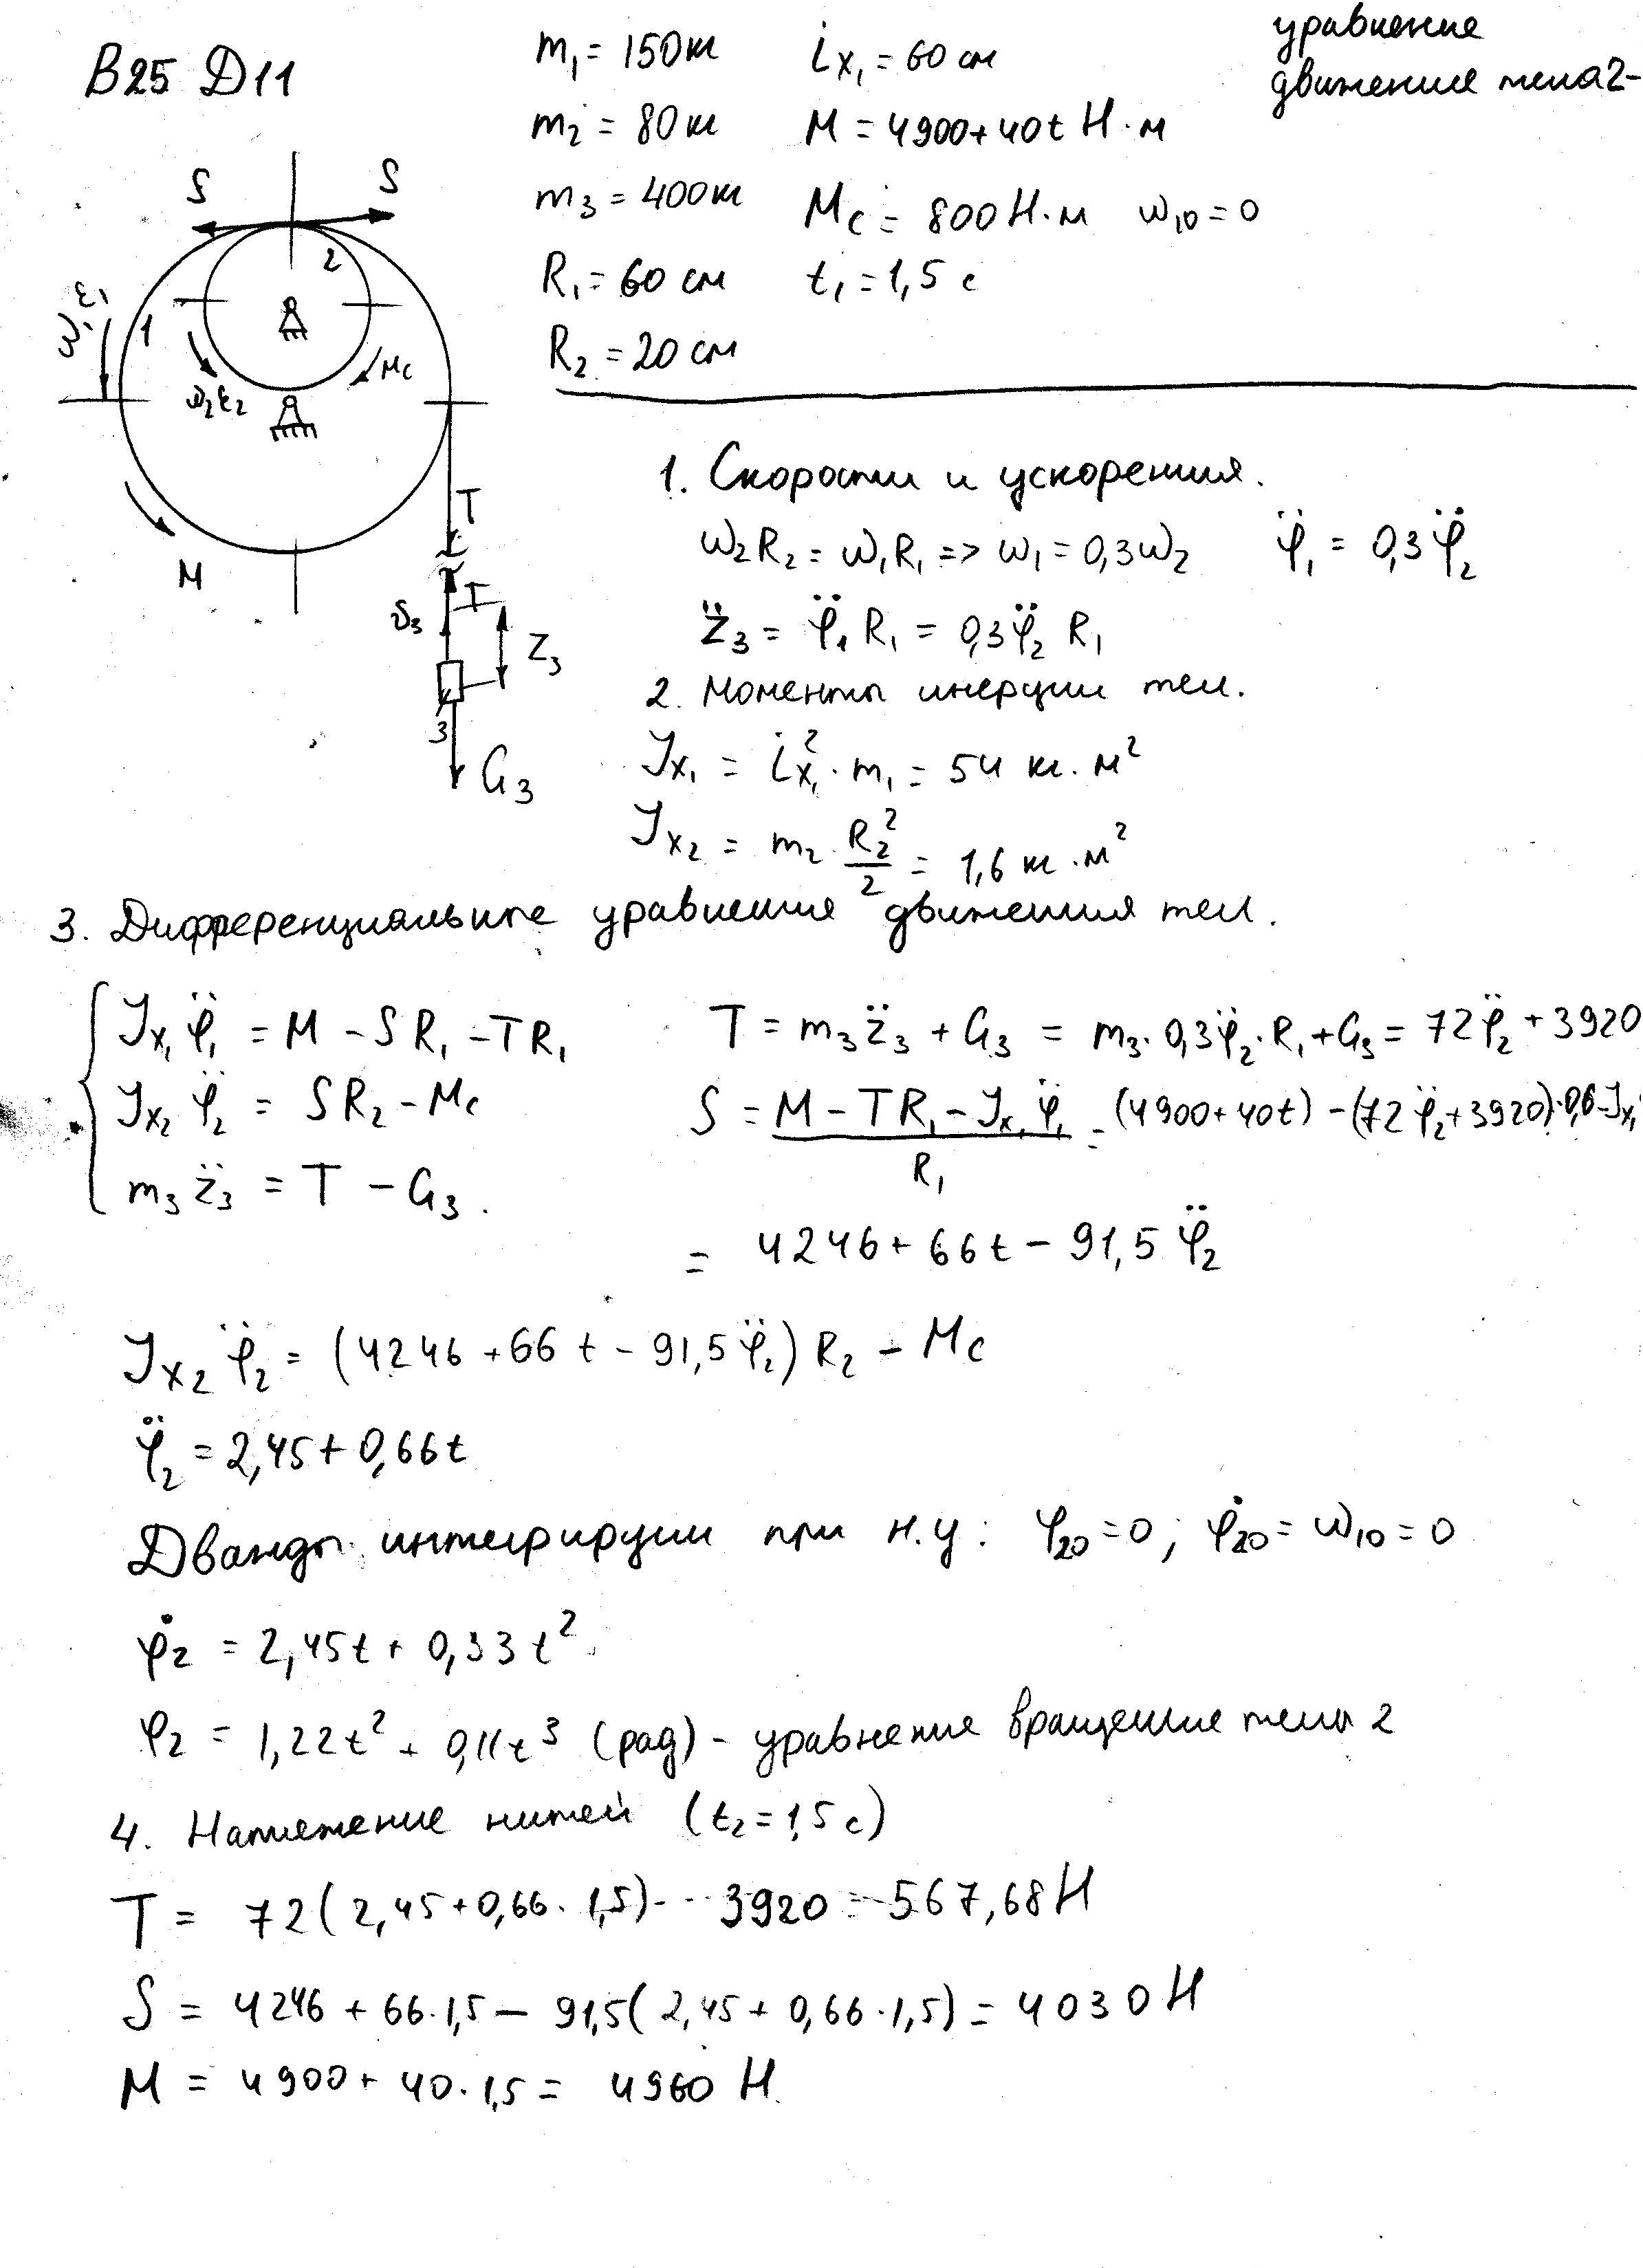 В25 Д11
m₁ = 150 кг
m₂ = 80 кг
m₃ = 400 кг
R₁ = 60 см
R₂ = 20 см
i_x₁ = 60 см
M = 4900 + 40t Н·м
M_c = 800 Н·м ω₁₀ = 0
t₁ = 1,5 с
уравнение
движение тела 2-
S S
2
ε₁
ω₁
1
M_c
ω₂ ε₂
M
T
T
v₃
Z₃
3
G₃
1. Скорости и ускорения.
ω₂R₂ = ω₁R₁ => ω₁ = 0,3ω₂ φ̈₁ = 0,3φ̈₂
z̈₃ = φ̈₁ R₁ = 0,3φ̈₂ R₁
2. Моменты инерции тел.
J_x₁ = i²_x₁ · m₁ = 54 кг·м²
J_x₂ = m₂ · R₂²/2 = 1,6 кг·м²
3. Дифференциальные уравнения движения тел.
J_x₁ φ̈₁ = M - SR₁ - TR₁
J_x₂ φ̈₂ = SR₂ - M_c
m₃ z̈₃ = T - G₃.
T = m₃z̈₃ + G₃ = m₃·0,3φ̈₂·R₁ + G₃ = 72φ̈₂ + 3920
S = (M - TR₁ - J_x₁ φ̈₁)/R₁ = (4900 + 40t) - (72φ̈₂ + 3920)·0,6 - J_x₁
= 4246 + 66t - 91,5 φ̈₂
J_x₂ φ̈₂ = (4246 + 66t - 91,5φ̈₂) R₂ - M_c
φ̈₂ = 2,45 + 0,66t
Дважды интегрируем при н.у: φ₂₀ = 0; φ̇₂₀ = ω₁₀ = 0
φ̇₂ = 2,45t + 0,33t²
φ₂ = 1,22t² + 0,11t³ (рад) - уравнение вращение тела 2
4. Натяжение нитей (t₂ = 1,5 с)
T = 72(2,45 + 0,66 · 1,5) - 3920 = 567,68 Н
S = 4246 + 66·1,5 - 91,5(2,45 + 0,66·1,5) = 4030 Н
M = 4900 + 40·1,5 = 4960 Н